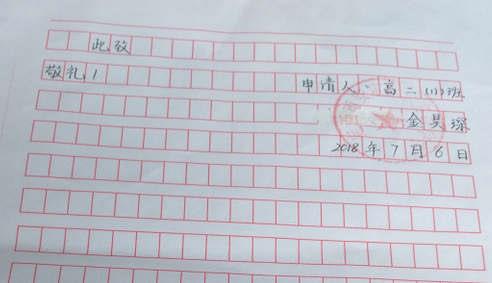 此致
敬礼！
申请人：高二（1）班
金昊琛
2018年7月6日